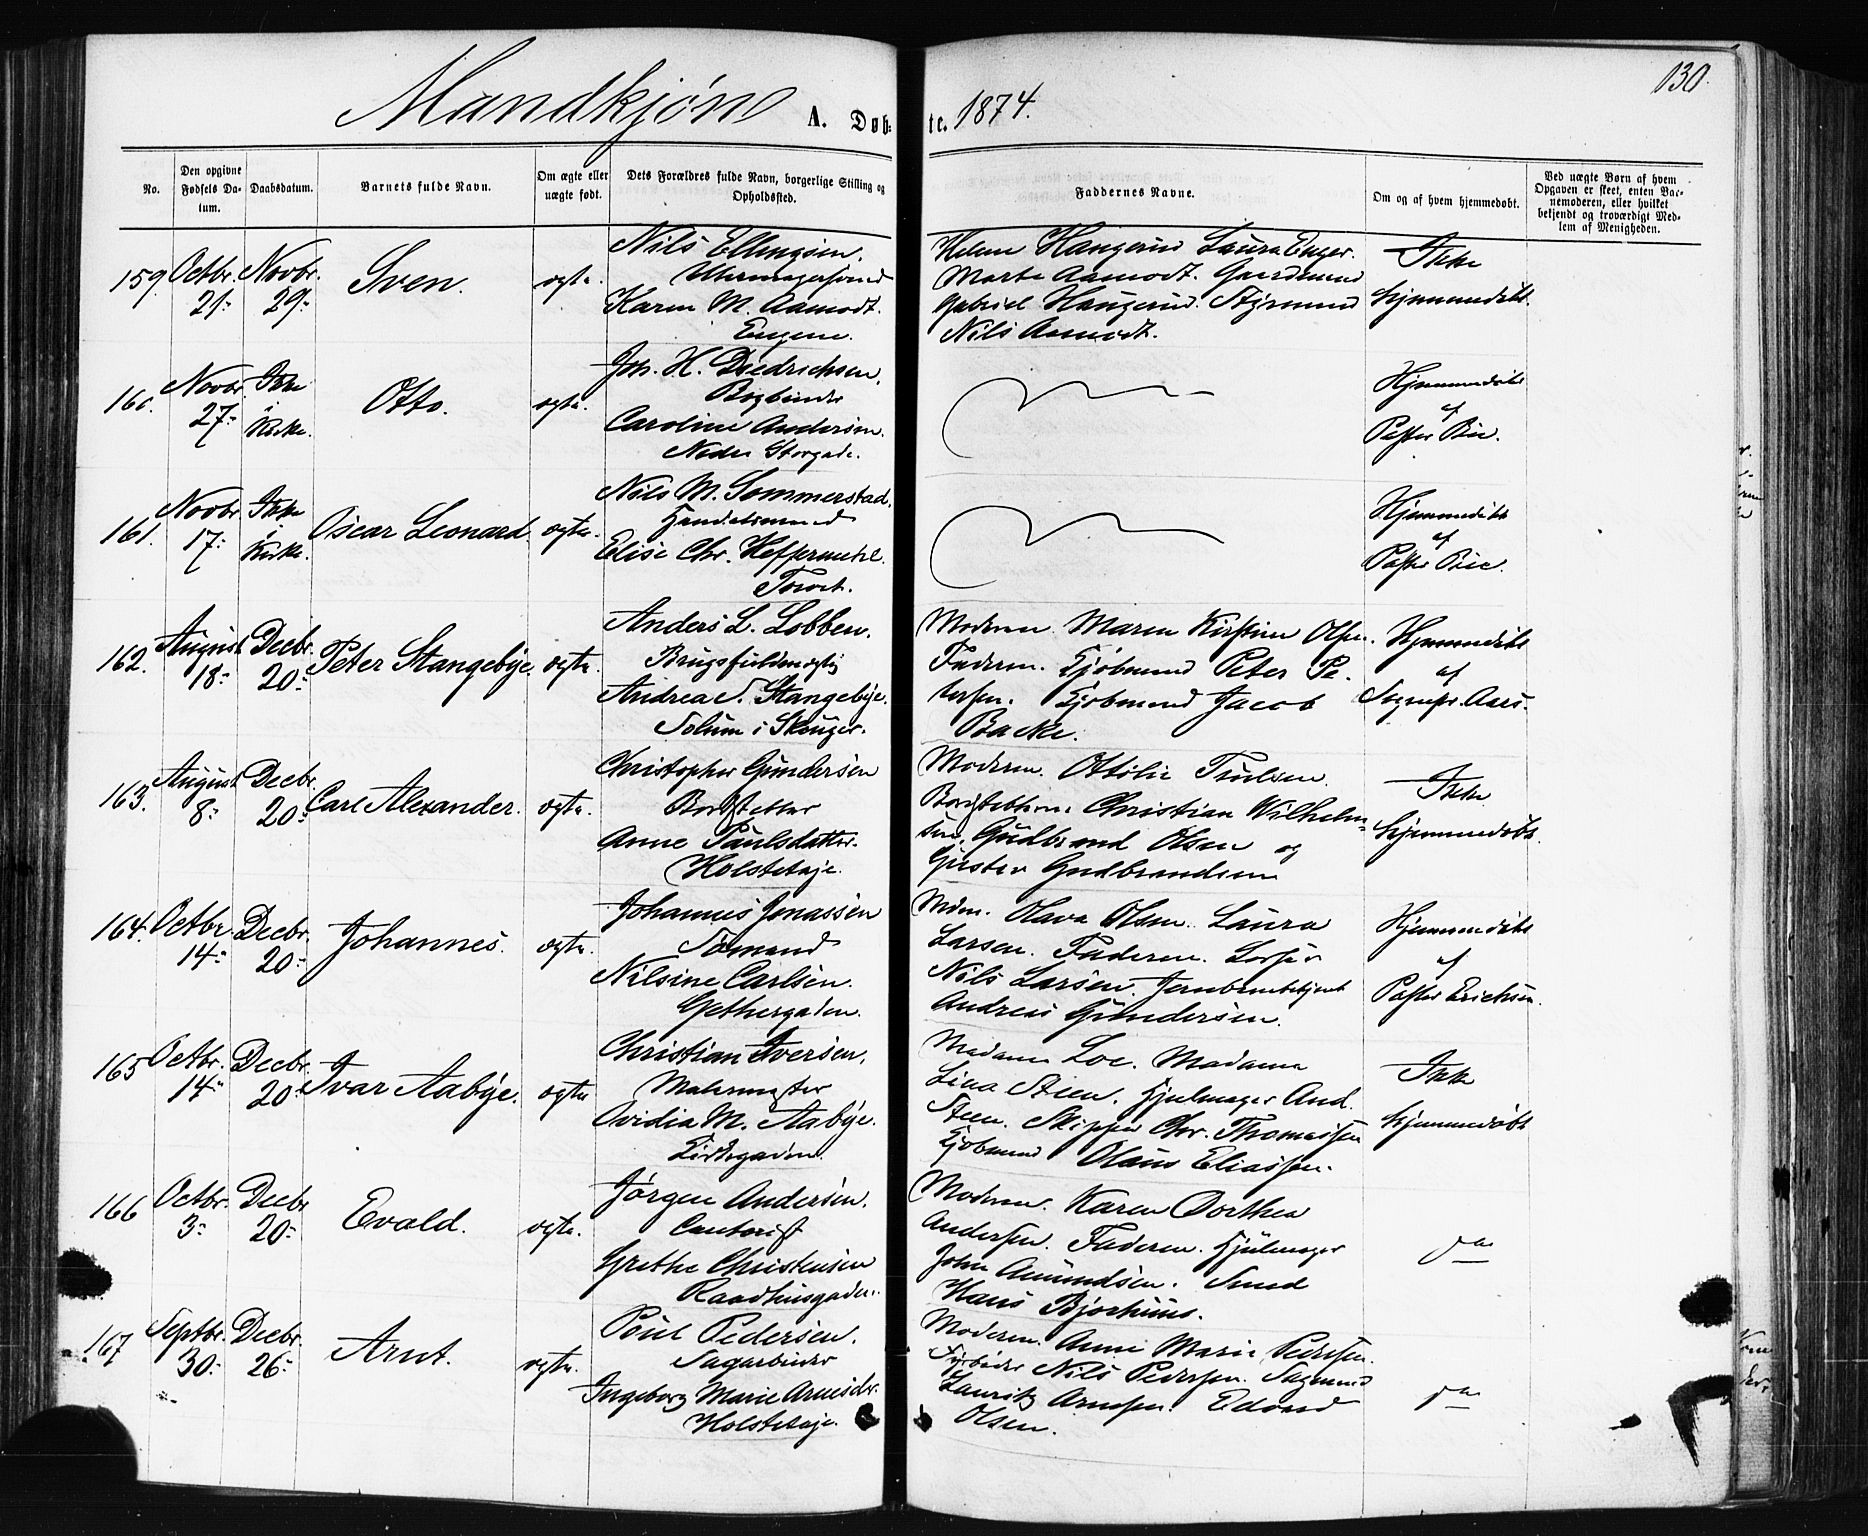 Mandkjøn A. Døb- te. 1874. 130.
No.
Den opgivne Fødsels Da- tum.
Daabsdatum.
Barnets fulde Navn.
Om ægte eller uægte født.
Dets Forældres fulde Navn, borgerlige Stilling og Opholdssted.
Faddernes Navne.
Om og af hvem hjemmedøbt.
Ved uægte Børn af hvem Opgaven er skeet, enten Bar- nemoderen, eller hvilket bekjendt og troværdigt Med- lem af Menigheden.
159. Octbr. 21: Novbr. 29: Sven. ægte.
Nils Ellingsen.
Uhrmagersvend
Karen M. Aamodt.
Engene.
Helene Haugerud Laura Enger.
Marte Aamodt. Gaardmand
Gabriel Haugerud. Styrmand
Nils Aamodt.
Ikke
hjemmedøbt.
160. Novbr. 27: Ikke i Kirke. Otto. ægte.
Joh. H. Diedrichsen.
Bogbinder
Caroline Andersen.
Nedre Storgade.
Hjemmedøbt
af
Pastor Bie.
161. Novbr 17: Ikke i Kirke. Oscar Leonard. ægte.
Nils M. Sommerstad.
Handelsmand
Elise Chr. Heffermehl.
Torvet.
Hjemmedøbt
af
Pastor Bie.
162. August 18: Decbr. 20: Peter Stangebye. ægte.
Anders L. Lobben.
Brugsfuldmægtig
Andrea S. Stangebye.
Solum i Skouger.
Moderen. Maren Kirstine Olsen.
Faderen. Kjøbmand Peter Pe-
tersen. Kjøbmand Jacob
Backe.
Hjemmedøbt
af
Sognepr. Aars.
163. August 8: Decbr. 20: Carl Alexander. ægte.
Christopher Gundersen
Bordstabler
Anne Paulsdatter.
Holstetøje.
Moderen. Ottilie Trulsen.
Bordstablerne Christian Wilhelm-
sen, Gudbrand Olsen og
Gustav Gudbrandsen
Ikke
hjemmedøbt.
164. Octbr. 14: Decbr. 20: Johannes. ægte.
Johannes Jonassen
Sømand
Nilsine Carlsen.
Gethergaden.
Mdm. Olava Olsen. Laura
Larsen. Faderen.
Nils Larsen. Jernbanebetjent
Andreas Gundersen.
Hjemmedøbt
af
Pastor Erichsen.
165 Octbr. 14: Decbr. 20: Ivar Aabye. ægte
Christian Iversen.
Malermester
Ovidia M. Aabye.
Kirkegaden.
Madame Loe. Madame
Lina Steen. Hjulmager And.
Steen. Skipper Chr. Thomassen
Kjøbmand Olaus Eliassen.
Ikke
hjemmedøbt
166 Octbr. 3: Decbr 20: Evald. ægte.
Jørgen Andersen.
Contorist
Grethe Christensen
Raadhusgaden.
Moderen. Karen Dorthea
Andersen. Faderen. Hjulmager
John Amundsen. Smed
Hans Bjørhuus.
do
167 Septbr. 30: Decbr. 26: Arnt. ægte.
Poul Pedersen.
Sagarbeider
Ingeborg Marie Arnesdr.
Holstetøje.
Moderen. Anne Marie Pedersen.
Fyrbøder Nils Pedersen. Sagmand
Lauritz Arnesen. Edvard
Olsen.
do